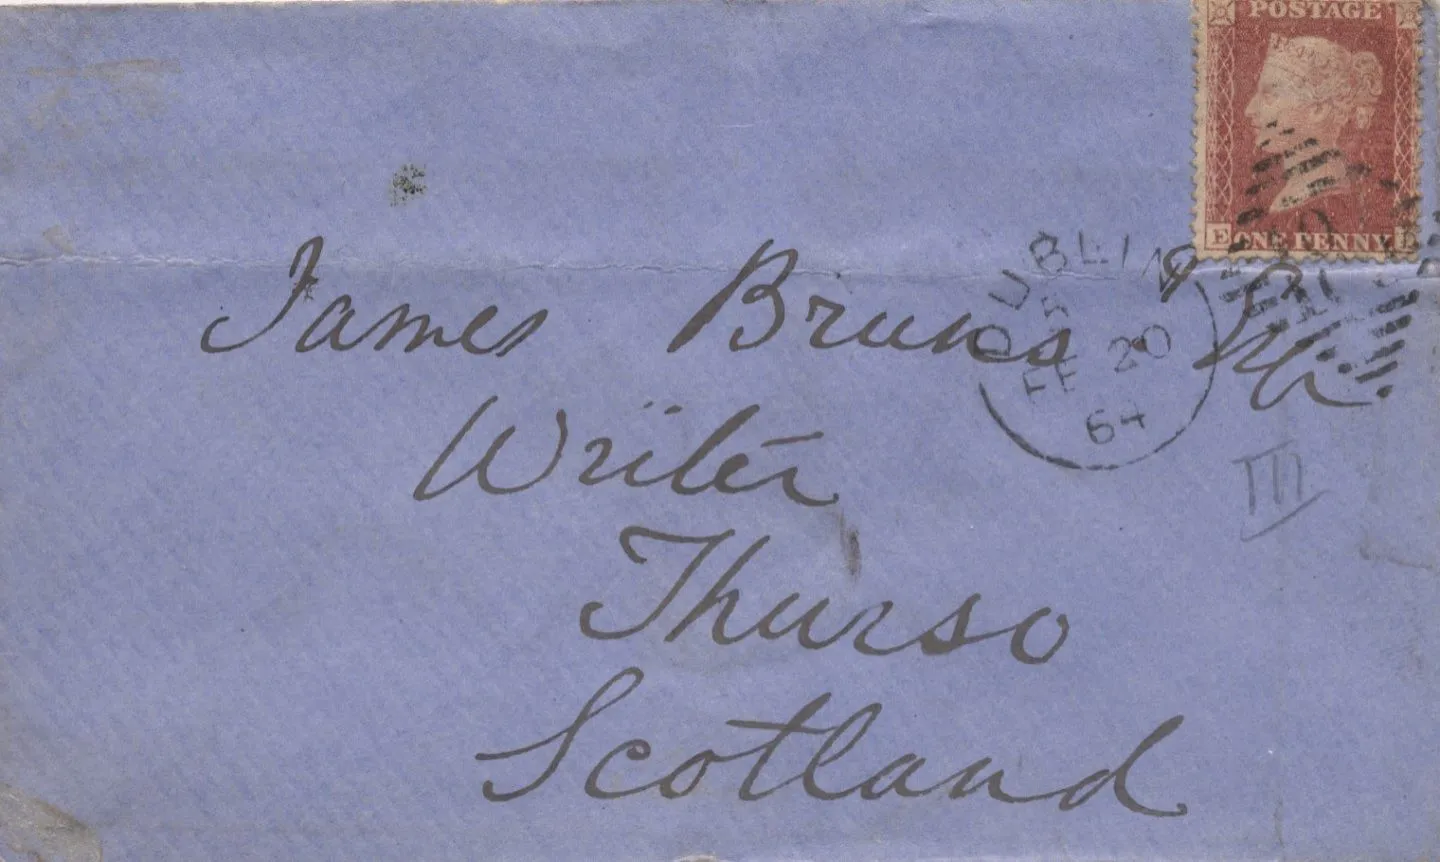 POSTAGE
E ONE PENNY
DUBLIN
FE 20
64
James Bruns
Writer
Thurso
Scotland
III